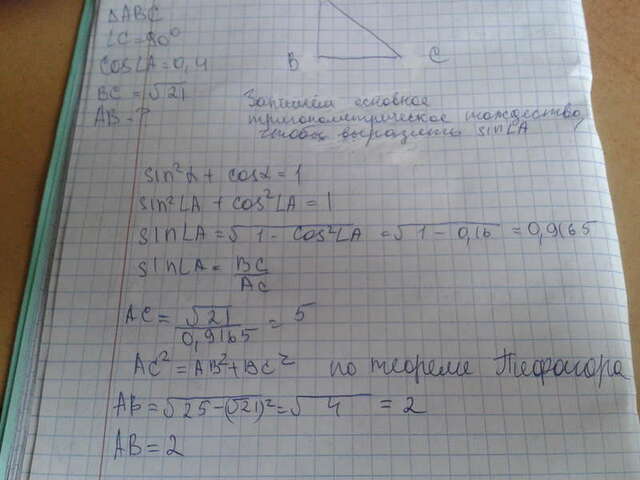 ΔABC
∠C=90°
cos∠A=0,4
BC=√21
AB-?
B C
Запишем основное
тригонометрическое тождество,
чтобы выразить sin∠A
sin²α + cosα=1
sin²∠A + cos²∠A=1
sin∠A=√1-cos²∠A =√1-0,16 =0,9165
sin∠A= BC/AC
AC= √21/0,9165 = 5
AC²=AB²+BC² по теореме Пифагора
AB=√25-(√21)²=√4 =2
AB=2